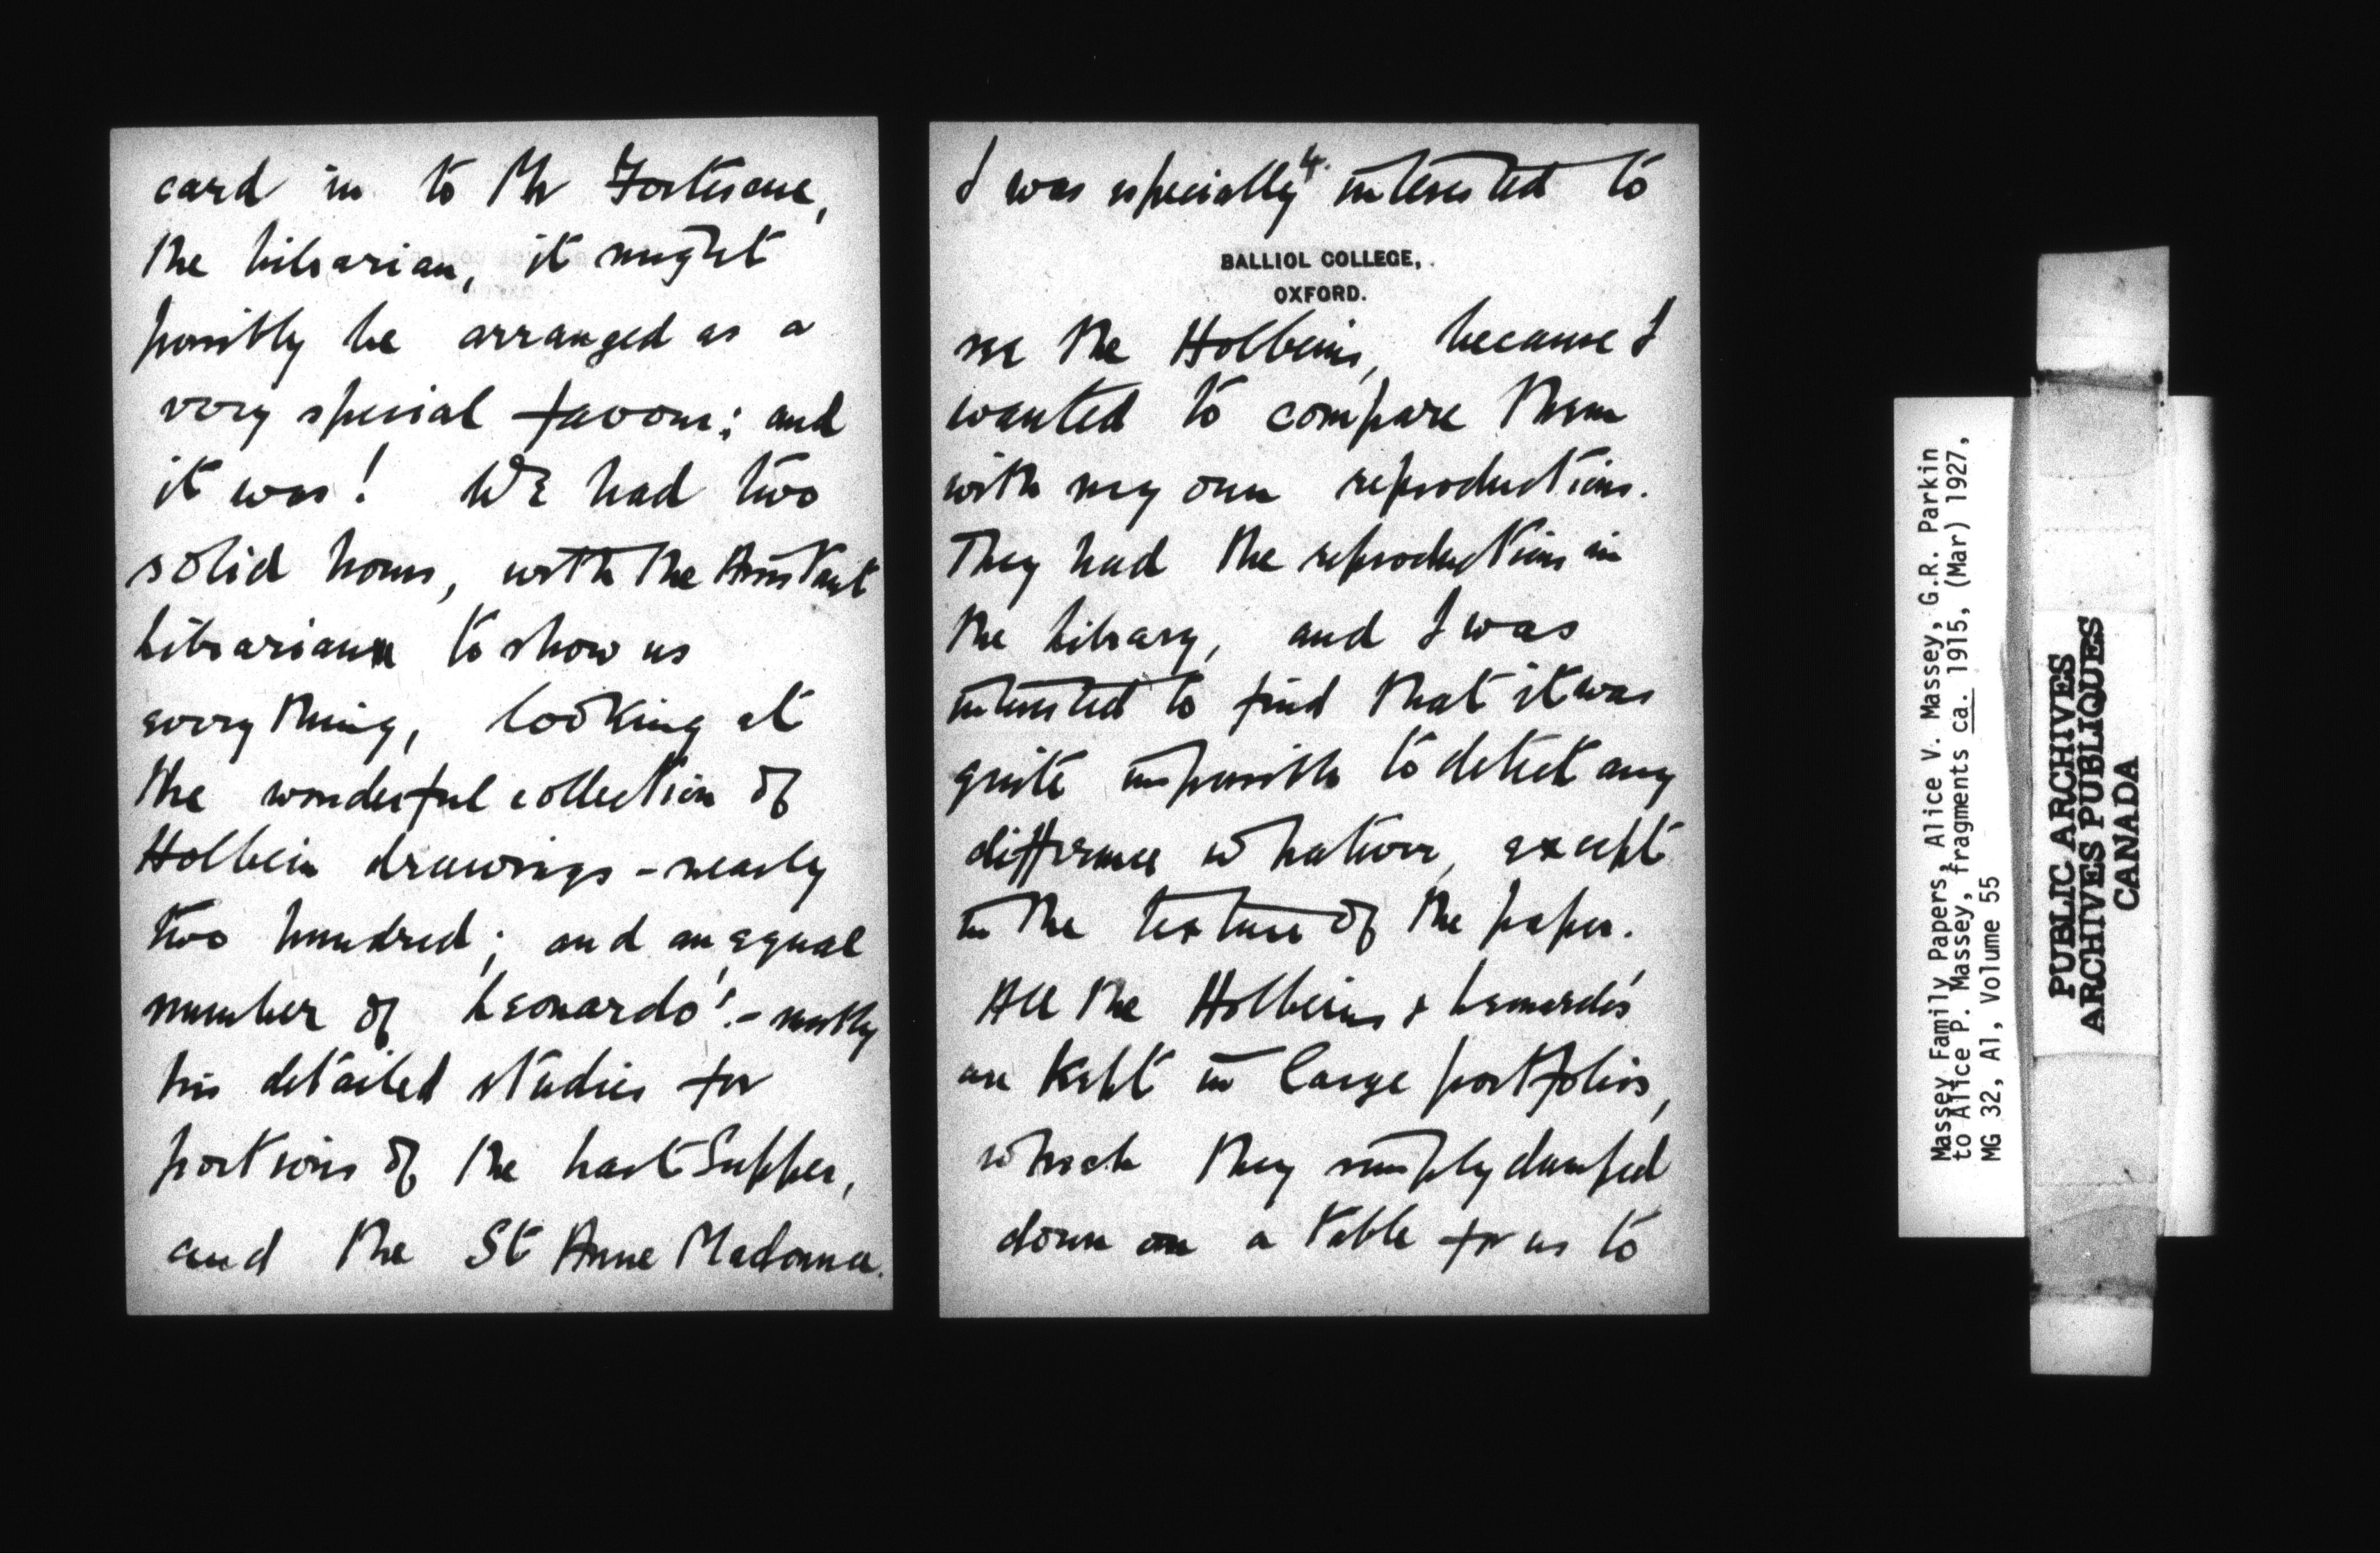 card in to Mr Fortescue,
the librarian, it might
possibly be arranged as a
very special favour; and
it was! We had two
solid hours, with the Assistant
Librarian to show us
everything, looking at
the wonderful collection of
Holbein drawings - nearly
two hundred; and an equal
number of Leonardo's - mostly
his detailed studies for
portions of the Last Supper,
and the St Anne Madonna.
4.
I was especially interested to
BALLIOL COLLEGE,
OXFORD.
see the Holbeins, because I
wanted to compare them
with my own reproductions.
They had the reproductions in
the Library, and I was
interested to find that it was
quite impossible to detect any
difference whatever, except
in the texture of the paper.
All the Holbeins & Leonardo's
are kept in large portfolios,
which they simply dumped
down on a table for us to
Massey Family Papers, Alice V. Massey, G.R. Parkin
to Alice P. Massey, fragments ca. 1915, (Mar) 1927,
MG 32, A1, Volume 55
PUBLIC ARCHIVES
ARCHIVES PUBLIQUES
CANADA